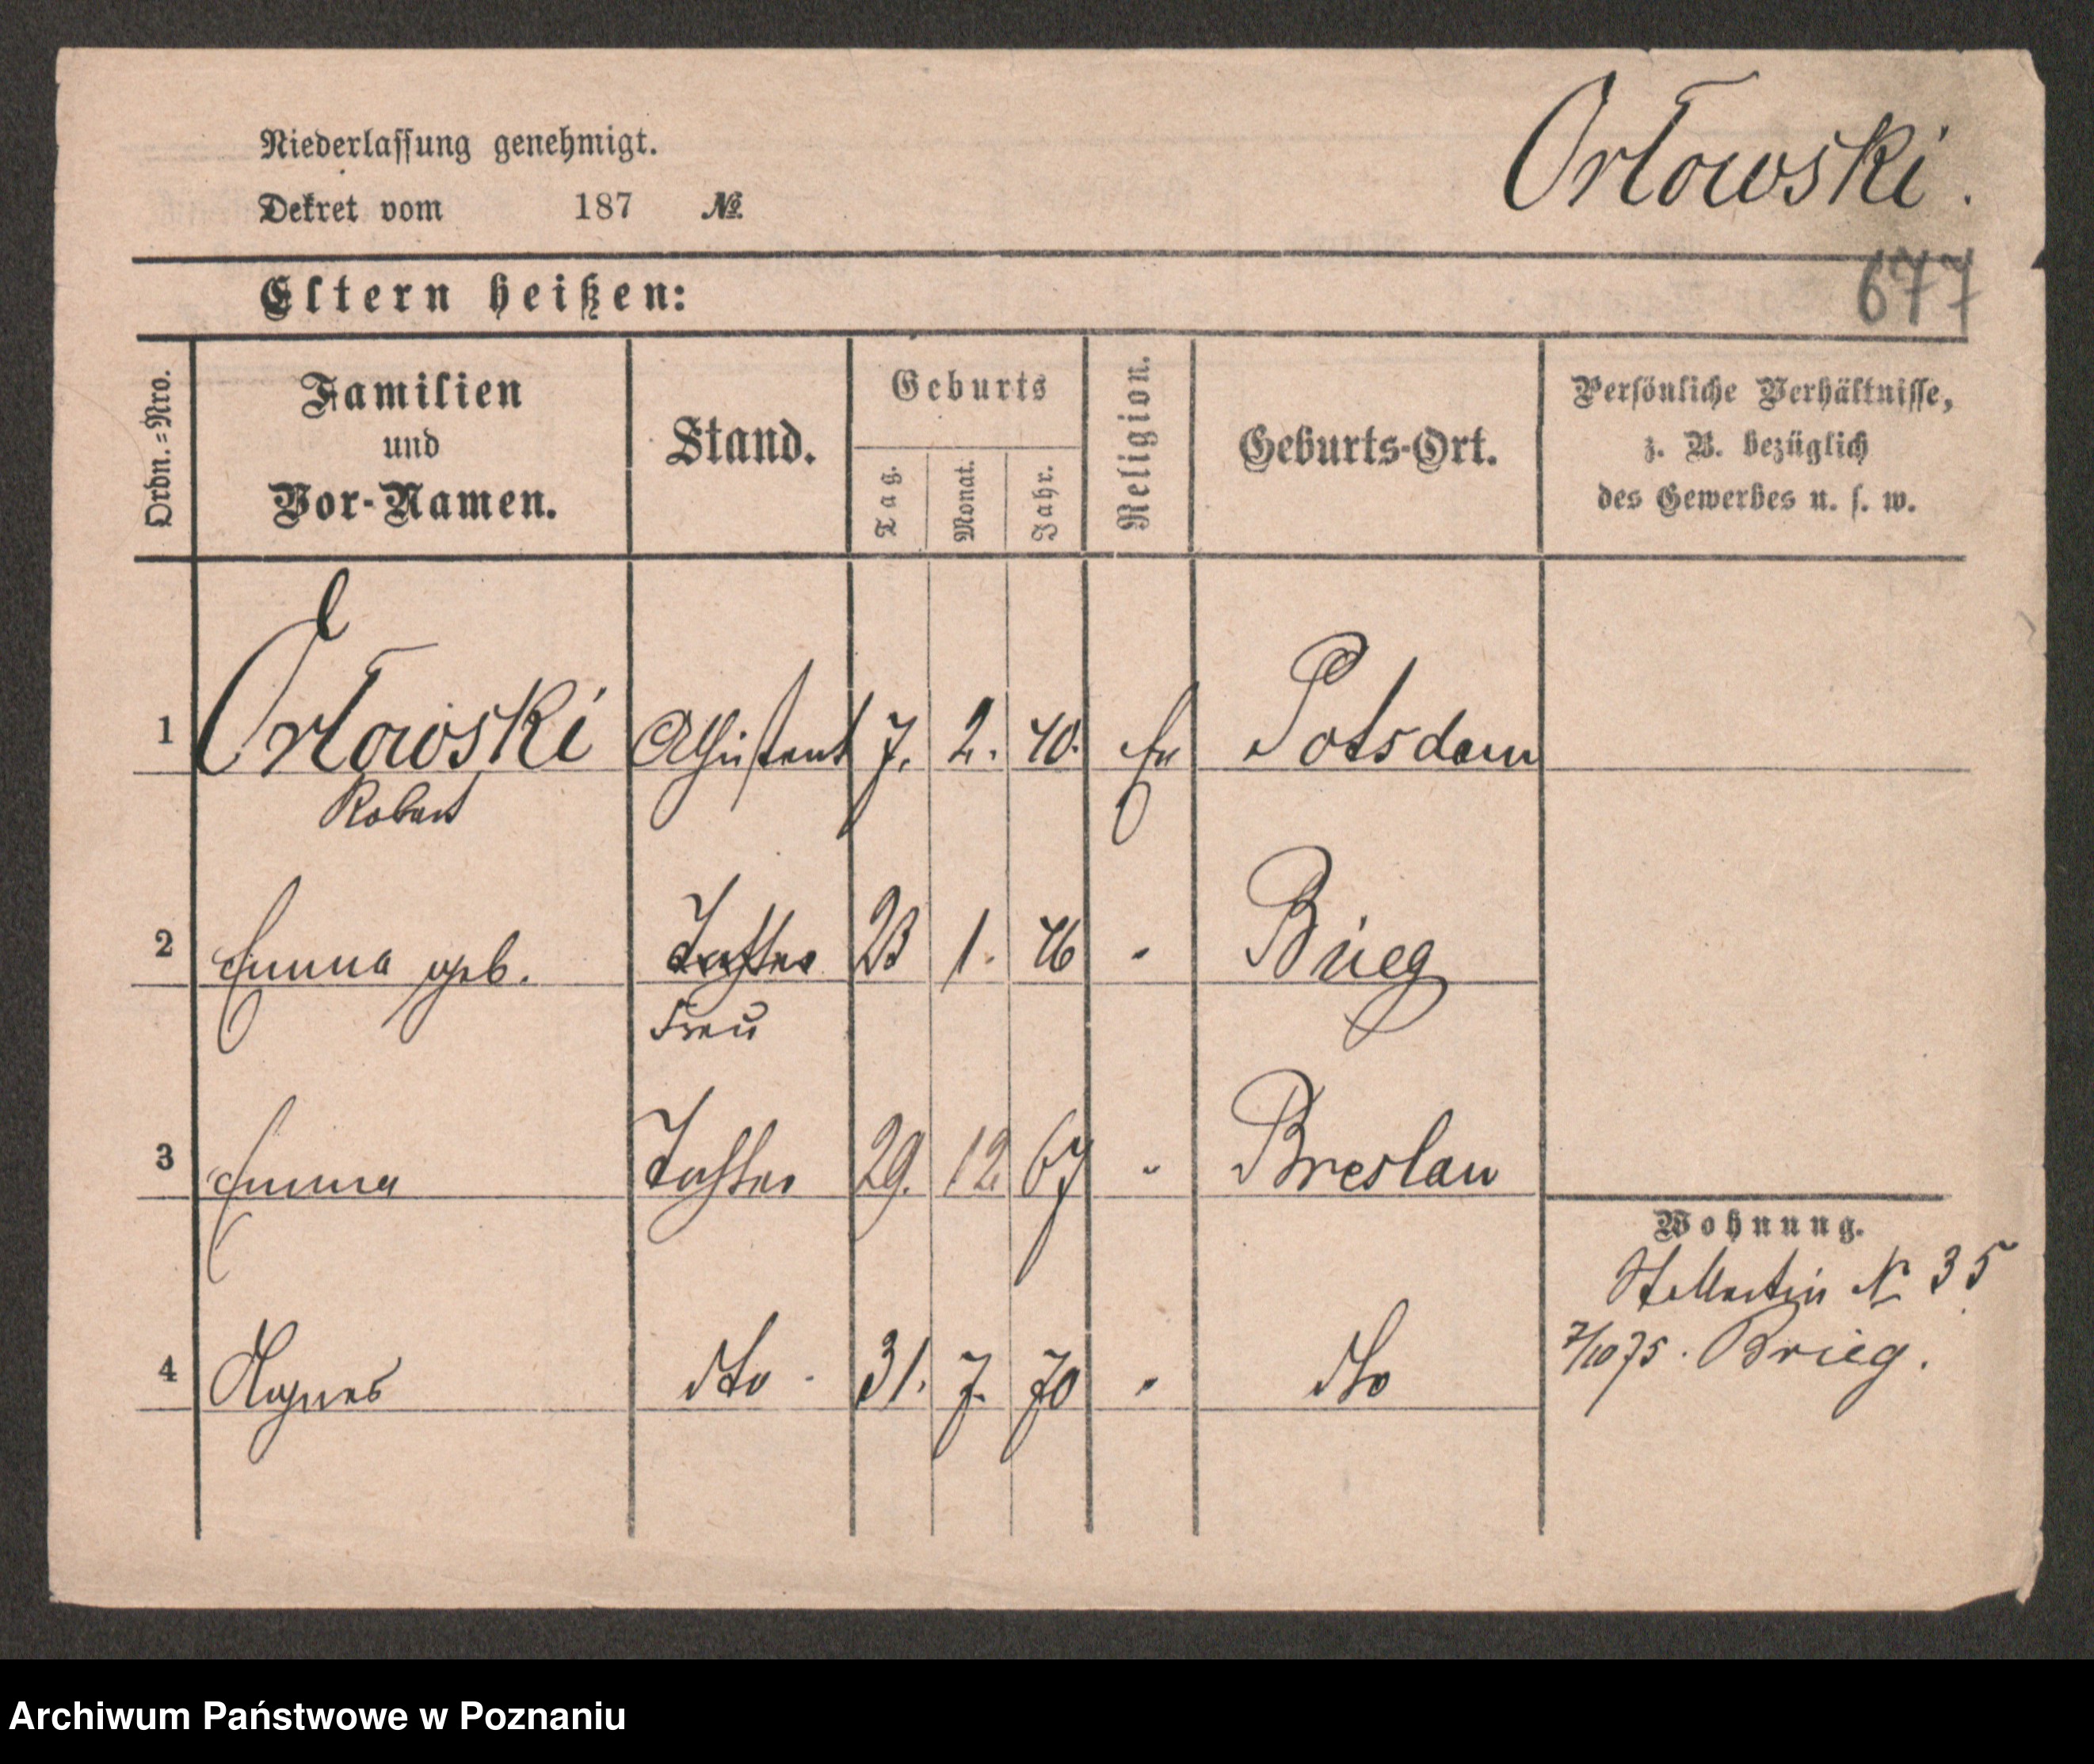 Niederlassung genehmigt.
Dekret vom 187 №
Orłowski.
677
Eltern heißen:
Ordn.=Nro.
Familien
und
Vor-Namen.
Stand.
Geburts
Tag.
Monat.
Jahr.
Religion.
Geburts-Ort.
Persönliche Verhältnisse,
z. B. bezüglich
des Gewerbes u. s. w.
1 Orłowski Assistent 7. 2. 40. Potsdam
Robert
2 Emma geb. Tochter 23 1. 46 " Brieg
Frau
3 Emma Tochter 29. 12. 67 " Breslau
Wohnung.
St. Martin № 35
7/10 75. Brieg.
4 Agnes dto. 31. 7. 70 " dto
Archiwum Państwowe w Poznaniu